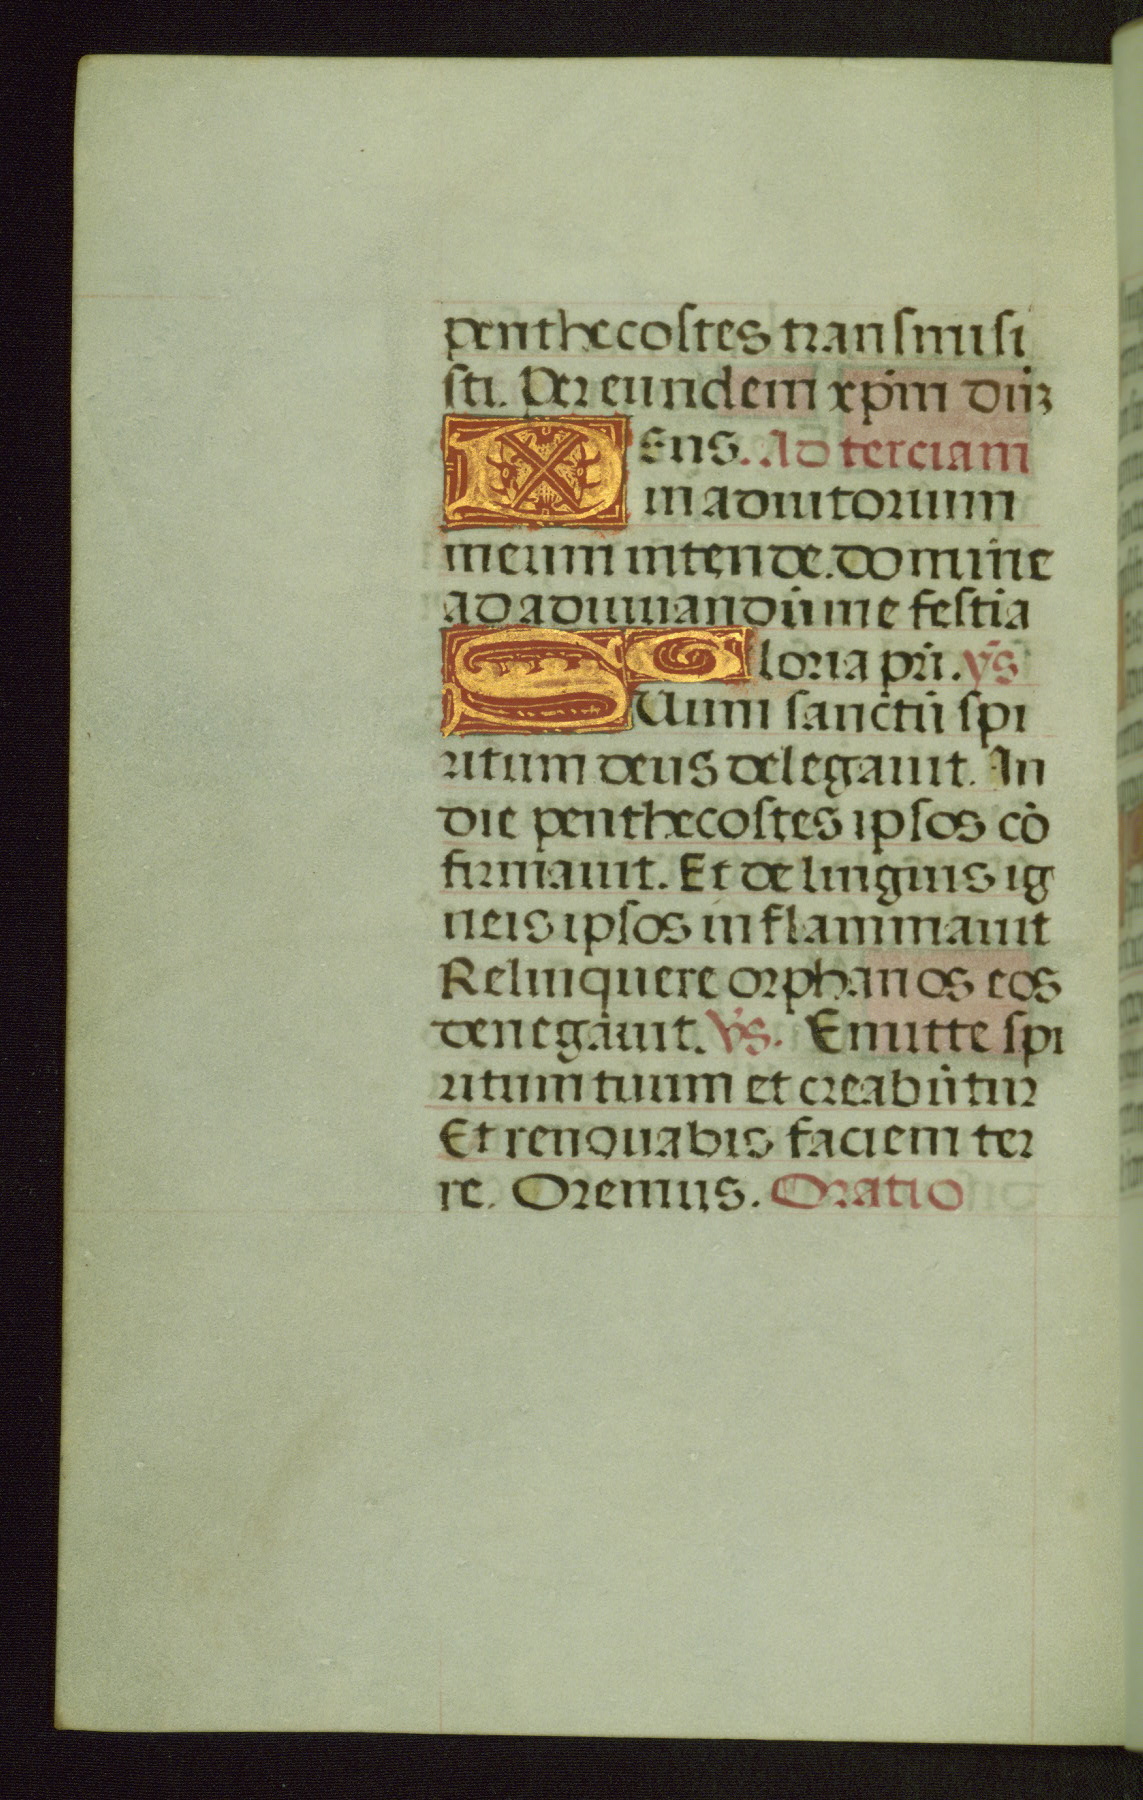 penthecoſtes tranſmiſi
ſti. Per eundem xp̄m dn̄ꝫ
DEus. Ad terciam
in adiutorium
meum intende. domine
ad adiuuandū me feſtīa
Gloria pr̄i. v̄s
SUum ſanctū ſpi
ritum deus delegauit. In
die penthecoſtes ipſos cō
firmauit. Et de linguis ig
neis ipſos inflammauit
Relinquere orphanos eos
denegauit. V̄s. Emitte ſpi
ritum tuum et creabūtur
Et renouabis faciem ter
re. Oremus. Oratio